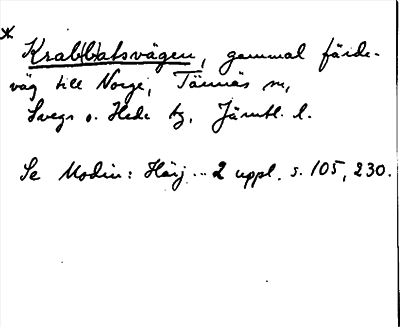 *
Krab(b)atsvägen, gammal färde-
väg till Norge, Tännäs sn,
Svegs o. Hede tg, Jämtl. l.
Se Modin: Härj... 2 uppl. s. 105, 230.